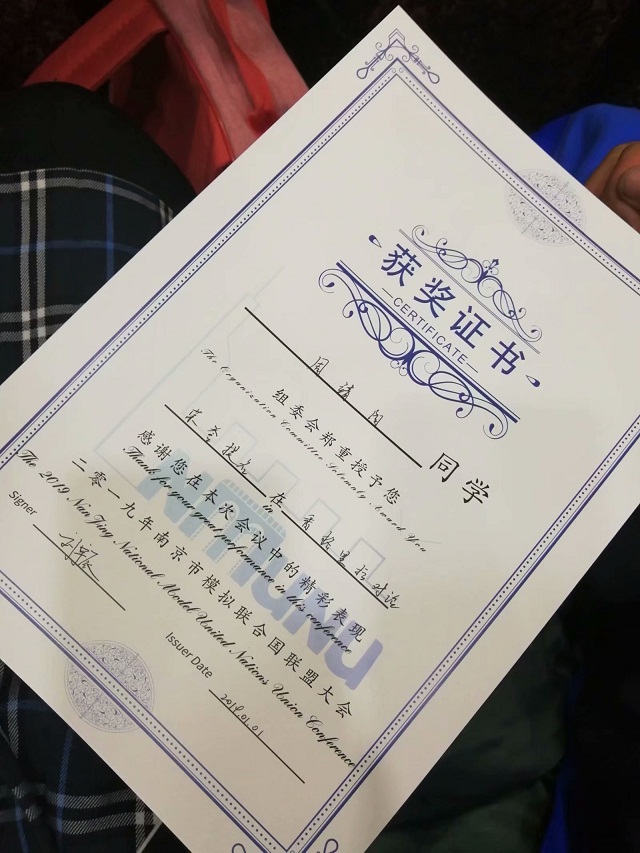 获奖证书
CERTIFICATE
同学
组委会郑重授予您
The Organization Committee Solemnly Award You
在
in
感谢您在本次会议中的精彩表现
Thanks for your great performance in this conference
NMUNU
二零一九年南京市模拟联合国联盟大会
The 2019 NanJing National Model United Nations Union Conference
Signer
Issuer Date
2019.01.01